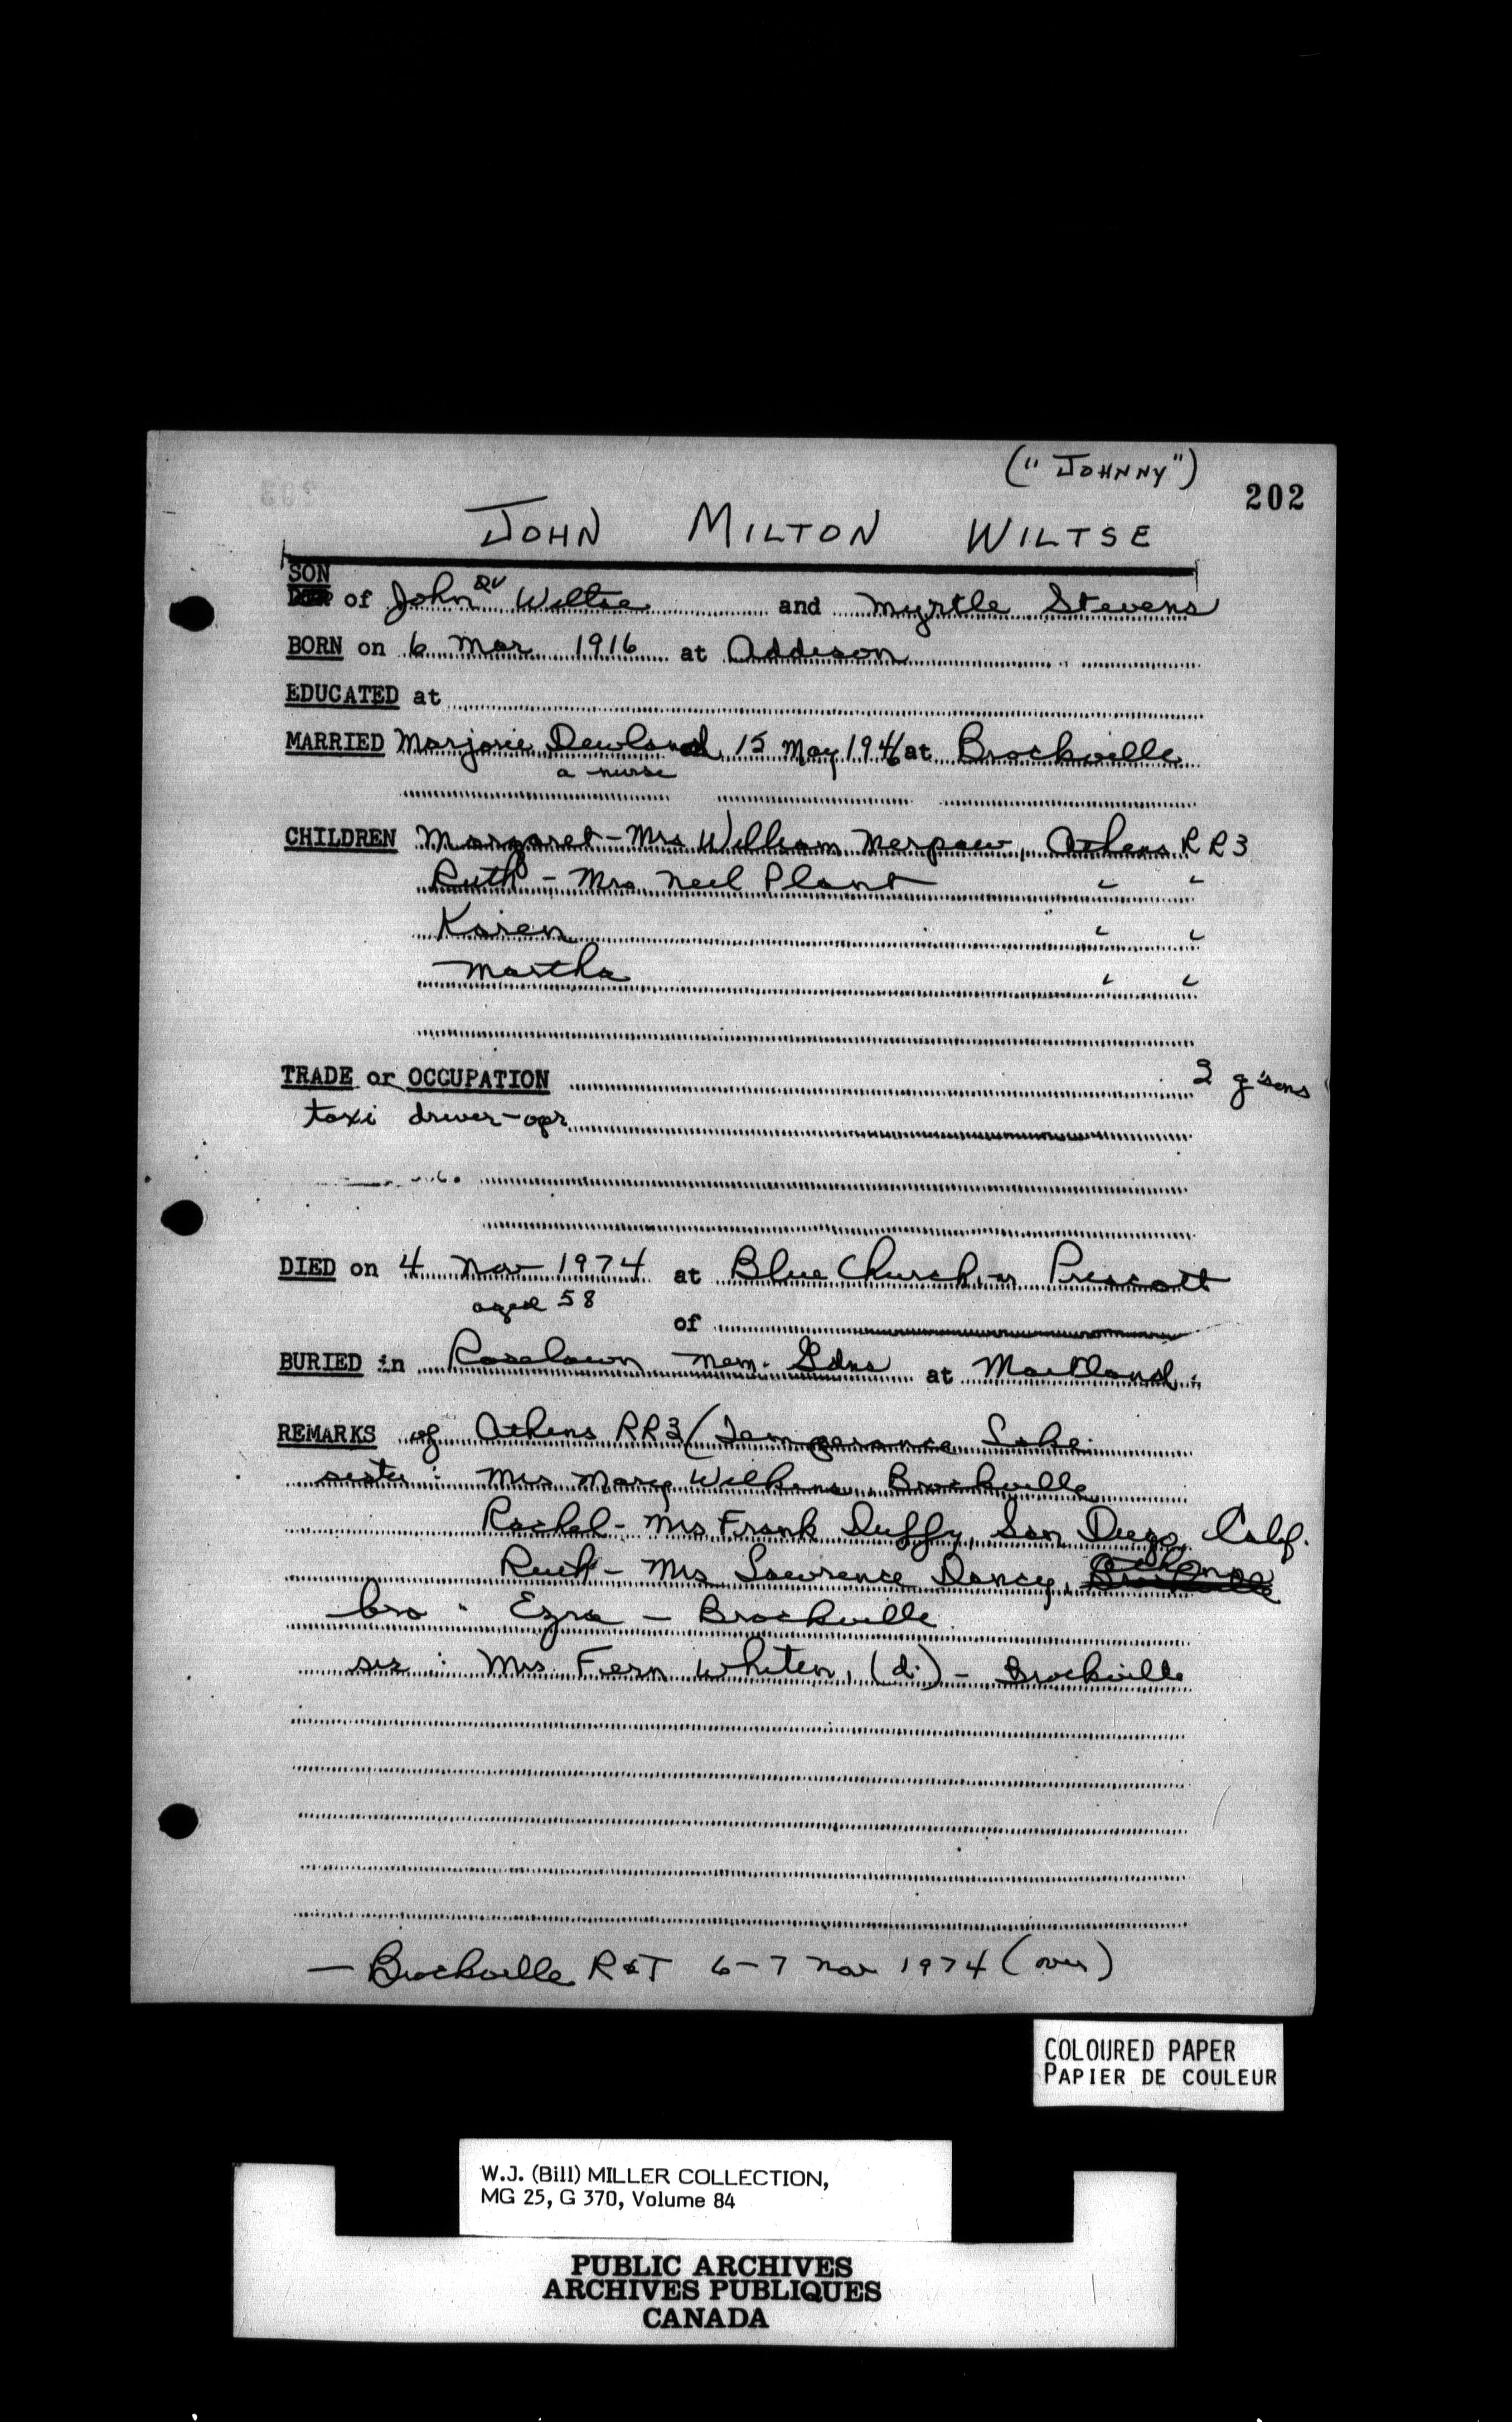 ("JOHNNY")
202
JOHN MILTON WILTSE
SON
of John Wiltse and Myrtle Stevens
BORN on 6 Mar 1916 at Addison
EDUCATED at
MARRIED Marjorie Dewland, 15 May 194 at Brockville
a nurse
CHILDREN Margaret - Mrs William Merpaw, Athens RR3
Ruth - Mrs Neil Plant " "
Karen " "
Martha " "
TRADE or OCCUPATION g'sons
taxi driver-opr
DIED on 4 Nov 1974 at Blue Church, nr Prescott
aged 58
of
BURIED in Roselawn Mem. Gdns at Maitland.
REMARKS of Athens RR3 (Temperance Lake
sister : Mrs Mary Wilkins, Brockville
Rachel - Mrs Frank Duffy, San Diego, Calif.
Ruth - Mrs Lawrence Dancy,
bro : Ezra - Brockville
sis : Mrs Fern Whiten, (d.) - Brockville
— Brockville R&T 6-7 Nov 1974 (over)
COLOURED PAPER
PAPIER DE COULEUR
W.J. (Bill) MILLER COLLECTION,
MG 25, G 370, Volume 84
PUBLIC ARCHIVES
ARCHIVES PUBLIQUES
CANADA